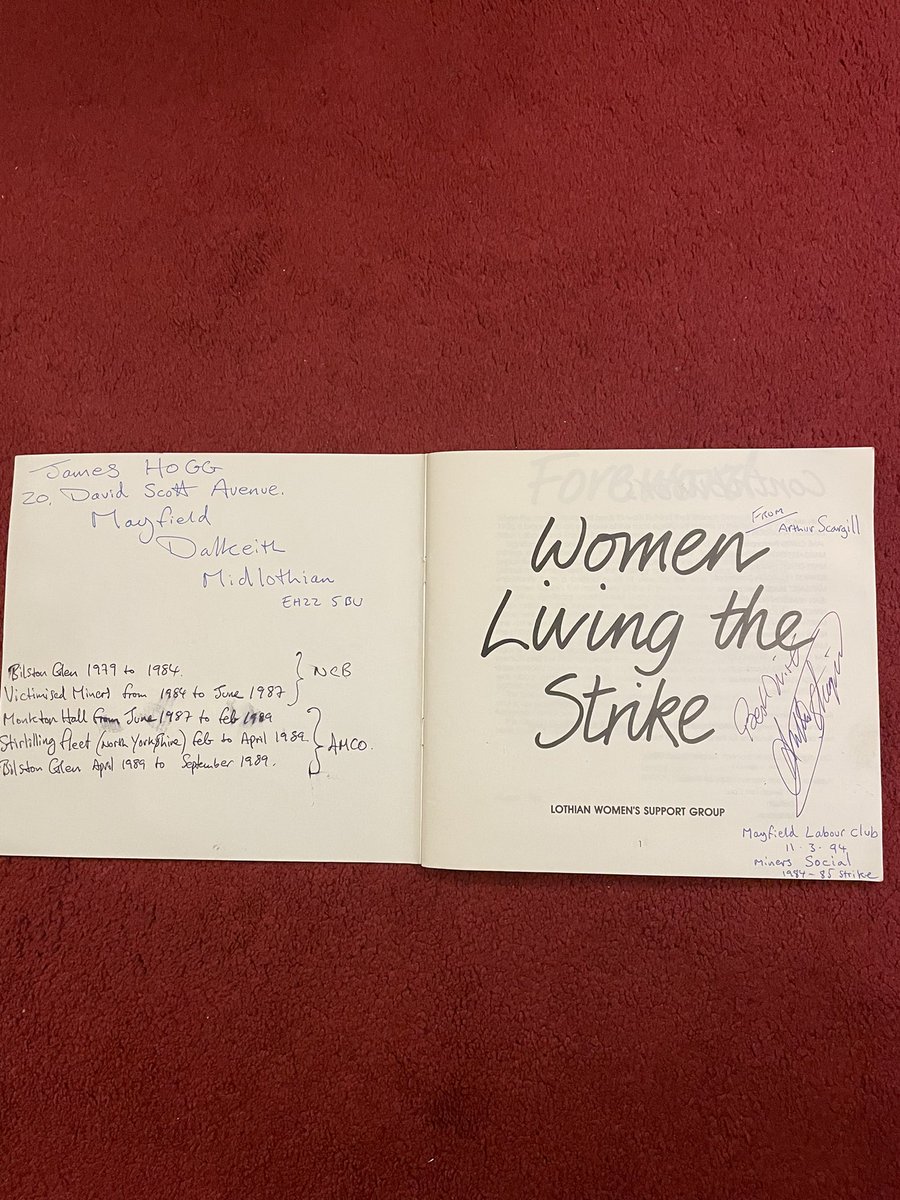 James HOGG
20, David Scott Avenue.
Mayfield
Dalkeith
Midlothian
EH22 5BU
Bilston Glen 1979 to 1984.
Victimised Miners from 1984 to June 1987
NCB
Monkton Hall from June 1987 to feb 1989
Stirlilling fleet (North Yorkshire) feb to April 1989.
Bilston Glen April 1989 to September 1989.
AMCO.
From
Arthur Scargill
Women
Living the
Strike
Best Wishes
Arthur Scargill
LOTHIAN WOMEN'S SUPPORT GROUP
1
Mayfield Labour Club
11.3.94
Miners Social
1984-85 Strike